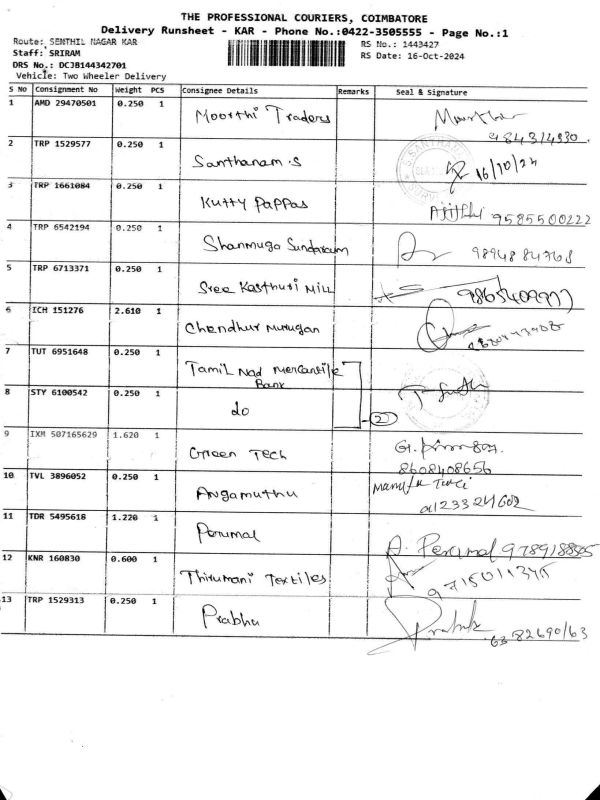 THE PROFESSIONAL COURIERS, COIMBATORE
Delivery Runsheet - KAR - Phone No.:0422-3505555 - Page No.:1
Route: SENTHIL NAGAR KAR
RS No.: 1443427
Staff: SRIRAM
RS Date: 16-Oct-2024
DRS No.: DCJB144342701
Vehicle: Two Wheeler Delivery
S No Consignment No Weight PCS Consignee Details Remarks Seal & Signature
1 AMD 29470501 0.250 1 Moorthi Traders
2 TRP 1529577 0.250 1 Santhanam.S 16/10/24
3 TRP 1661084 0.250 1 Kutty Pappas 9585500222
4 TRP 6542194 0.250 1 Shanmuga Sundaram 9894884768
5 TRP 6713371 0.250 1 Sree Kasthuri Mill
6 ICH 151276 2.610 1 Chendhur Murugan
7 TUT 6951648 0.250 1 Tamil Nad Mercantile
Bank
8 STY 6100542 0.250 1 do 2
9 IXM 507165629 1.620 1 Green Tech
8608408656
10 TVL 3896052 0.250 1 Angamuthu
11 TDR 5495618 1.220 1 Perumal
A. Perumal
12 KNR 160830 0.600 1 Thirumani Textiles
9715011345
13 TRP 1529313 0.250 1 Prabhu
6382690163